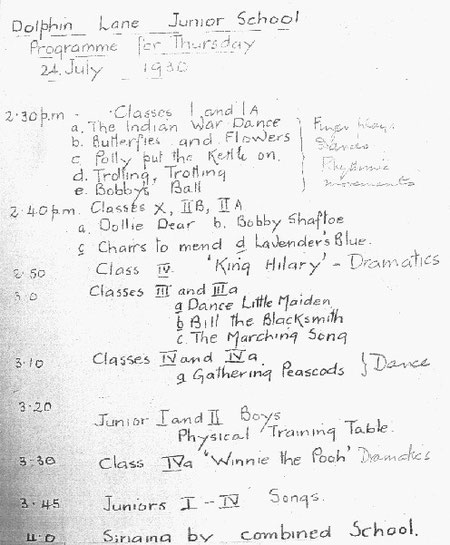 Dolphin Lane Junior School
Programme for Thursday
24 July 1930
2.30p.m - Classes I and IA
a. The Indian War Dance
b. Butterflies and Flowers
c. Polly put the Kettle on.
d. Trotting, Trotting
e. Bobby's Ball
Finger Plays
Dances
Rhythmic
movements
2.40p.m. Classes X, IIB, IIA
a. Dollie Dear b. Bobby Shaftoe
c Chairs to mend d Lavender's Blue.
2.50 Class IV. 'King Hilary' - Dramatics
3.0 Classes III and IIIa
a Dance Little Maiden
b Bill the Blacksmith
c. The Marching Song
3.10 Classes IV and IVa.
a Gathering Peascods } Dance
3.20 Junior I and II Boys
Physical Training Table.
3.30 Class IVa 'Winnie the Pooh' Dramatics
3.45 Juniors I - IV Songs.
4.0 Singing by combined School.